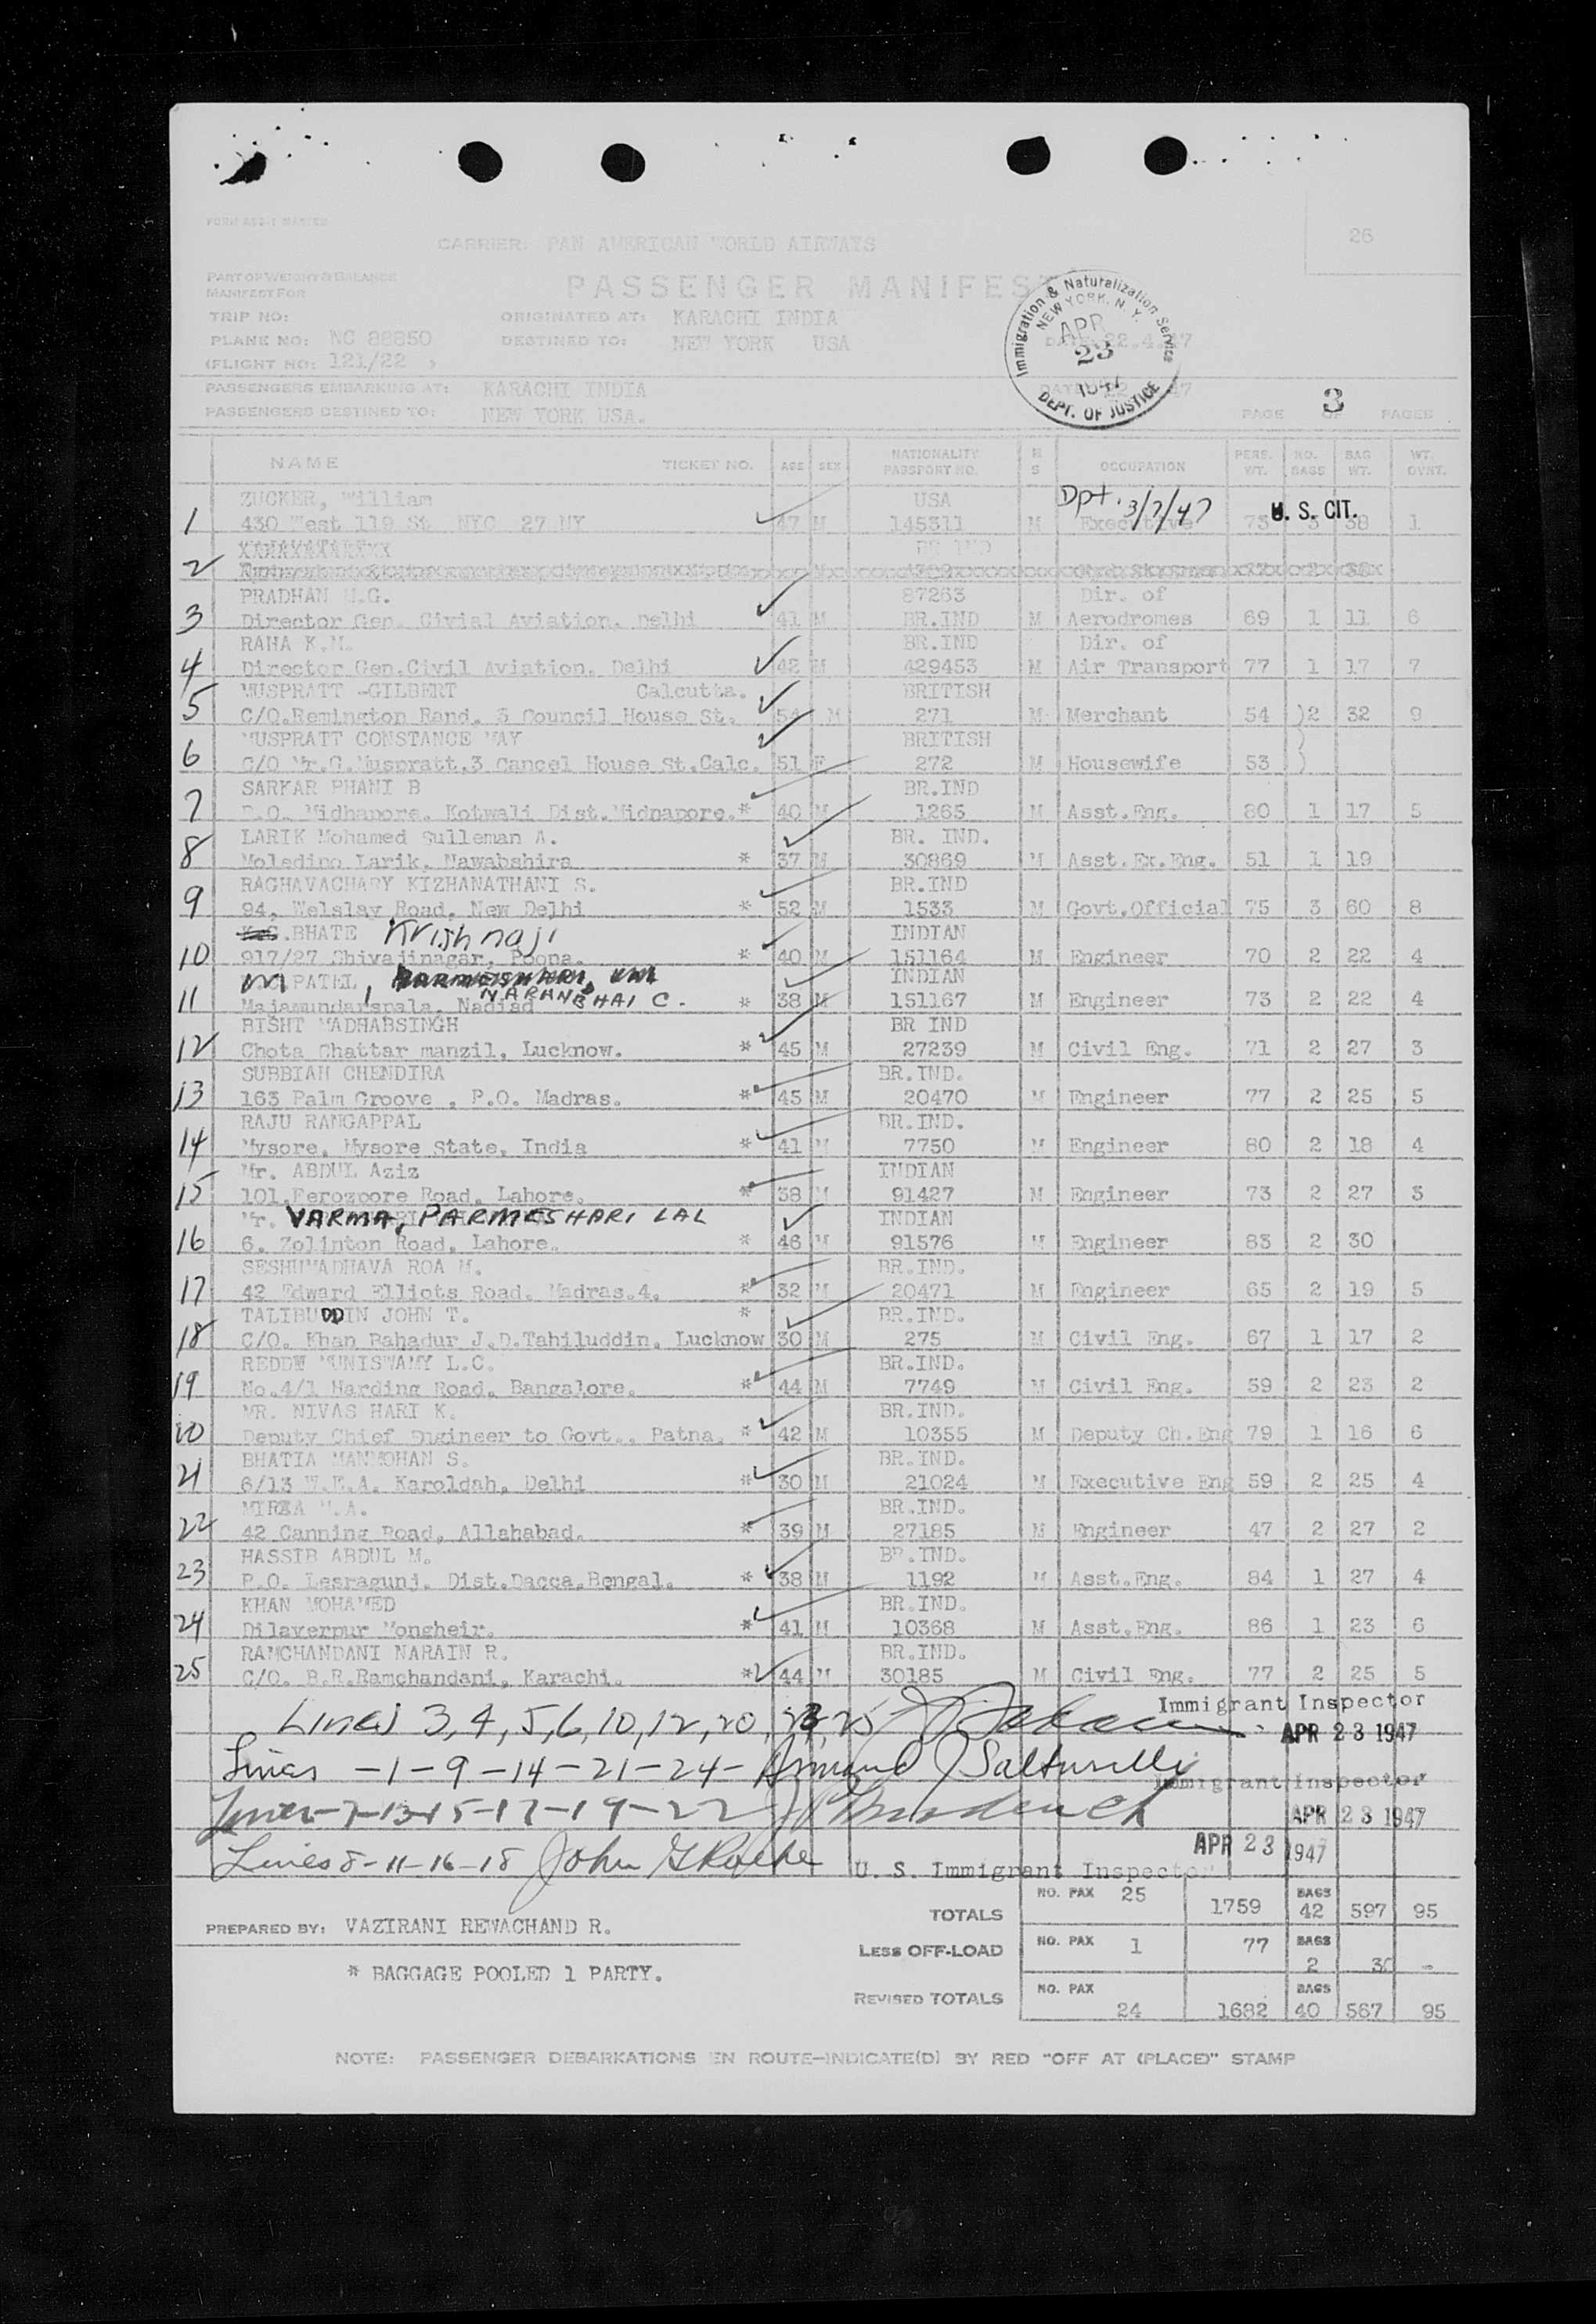 26
CARRIER: PAN AMERICAN WORLD AIRWAYS
PART OF WEIGHT & BALANCE
MANIFEST FOR
PASSENGER MANIFEST
Immigration & Naturalization Service
NEW YORK, N. Y.
APR
23
1947
DEPT. OF JUSTICE
TRIP NO:
ORIGINATED AT: KARACHI INDIA
PLANE NO: NC 88850
DESTINED TO: NEW YORK USA
DATE: 22.4.47
(FLIGHT NO: 121/22 )
PASSENGERS EMBARKING AT: KARACHI INDIA
PASSENGERS DESTINED TO: NEW YORK USA.
PAGE 3 OF PAGES
NAME TICKET NO. AGE SEX NATIONALITY PASSPORT NO. M S OCCUPATION PERS. WT. NO. BAGS BAG WT. WT. OVNT.
ZUCKER, William USA Dpt. 3/7/47 U. S. CIT.
1 430 West 119 St NYC 27 NY 47 M 145311 M Executive 73 3 38 1
2
PRADHAN 87263 Dir. of
3 Director Gen. Civial Aviation. Delhi 41 M BR.IND M Aerodromes 69 1 11 6
RAHA K.M. BR.IND Dir. of
4 Director Gen.Civil Aviation. Delhi 42 M 429453 M Air Transport 77 1 17 7
MUSPRATT -GILBERT Calcutta. BRITISH
5 C/O.Remington Rand. 3 Council House St. 54 M 271 M Merchant 54 )2 32 9
MUSPRATT CONSTANCE MAY BRITISH )
6 C/O Mr.G.Muspratt.3 Cancel House St.Calc. 51 F 272 M Housewife 53 )
SARKAR PHANI B BR.IND
7 P.O. Midhapore. Kotwali Dist.Midnapore.* 40 M 1265 M Asst.Eng. 80 1 17 5
LARIK Mohamed Sulleman A. BR. IND.
8 Moledino Larik. Nawabshira * 37 M 30869 M Asst.Ex.Eng. 51 1 19
RAGHAVACHARY KIZHANATHANI S. BR.IND
9 94, Welslay Road, New Delhi * 52 M 1533 M Govt.Official 75 3 60 8
K.G.BHATE Krishnaji INDIAN
10 917/27 Shivajinagar, Poona. * 40 M 151164 M Engineer 70 2 22 4
PATEL, PARMESHARI LAL INDIAN
NARANBHAI C.
11 Majamundarspala, Nadiad * 38 M 151167 M Engineer 73 2 22 4
BISHT MADHABSINGH BR IND
12 Chota Chattar manzil, Lucknow. * 45 M 27239 M Civil Eng. 71 2 27 3
SUBBIAH CHENDIRA BR.IND.
13 163 Palm Groove , P.O. Madras. * 45 M 20470 M Engineer 77 2 25 5
RAJU RANGAPPAL BR.IND.
14 Mysore, Mysore State, India * 41 M 7750 M Engineer 80 2 18 4
Mr. ABDUL Aziz INDIAN
15 101.Ferozpore Road. Lahore. * 38 M 91427 M Engineer 73 2 27 3
Mr. VARMA, PARMESHARI LAL INDIAN
16 6. Zolinton Road, Lahore. * 46 M 91576 M Engineer 83 2 30
SESHUMADHAVA ROA M. BR.IND.
17 42 Edward Elliots Road. Madras.4. * 32 M 20471 M Engineer 65 2 19 5
TALIBUDDIN JOHN T. * BR.IND.
18 C/O. Khan Bahadur J.D.Tahiluddin. Lucknow 30 M 275 M Civil Eng. 67 1 17 2
REDDW MUNISWAMY L.C. BR.IND.
19 No.4/1 Harding Road, Bangalore. * 44 M 7749 M Civil Eng. 59 2 23 2
MR. NIVAS HARI K. BR.IND.
20 Deputy Chief Engineer to Govt.. Patna. * 42 M 10355 M Deputy Ch.Eng 79 1 16 6
BHATIA MANMOHAN S. BR.IND.
21 6/13 W.E.A. Karoldah, Delhi * 30 M 21024 M Executive Eng 59 2 25 4
MIRZA M.A. BR.IND.
22 42 Canning Road, Allahabad. * 39 M 27185 M Engineer 47 2 27 2
HASSIB ABDUL M. BR.IND.
23 P.O. Lesragunj. Dist.Dacca.Bengal. * 38 M 1192 M Asst.Eng. 84 1 27 4
KHAN MOHAMED BR.IND.
24 Dilaverpur Mongheir. * 41 M 10368 M Asst.Eng. 86 1 23 6
RAMCHANDANI NARAIN R. BR.IND.
25 C/O. B.R.Ramchandani, Karachi. * 44 M 30185 M Civil Eng. 77 2 25 5
Immigrant Inspector
Lines 3, 4, 5, 6, 10, 12, 20, 23, 25
APR 23 1947
Lines -1-9-14-21-24- Armand J
Immigrant Inspector
Lines-7-13-15-17-19-22
APR 23 1947
APR 23 1947
Lines 8-11-16-18 John G Roche
U. S. Immigrant Inspector
TOTALS NO. PAX 25 1759 BAGS 42 597 95
PREPARED BY: VAZIRANI REWACHAND R.
LESS OFF-LOAD NO. PAX 1 77 BAGS 2 30 -
* BAGGAGE POOLED 1 PARTY.
REVISED TOTALS NO. PAX 24 1682 BAGS 40 567 95
NOTE: PASSENGER DEBARKATIONS EN ROUTE—INDICATE(D) BY RED "OFF AT (PLACE)" STAMP